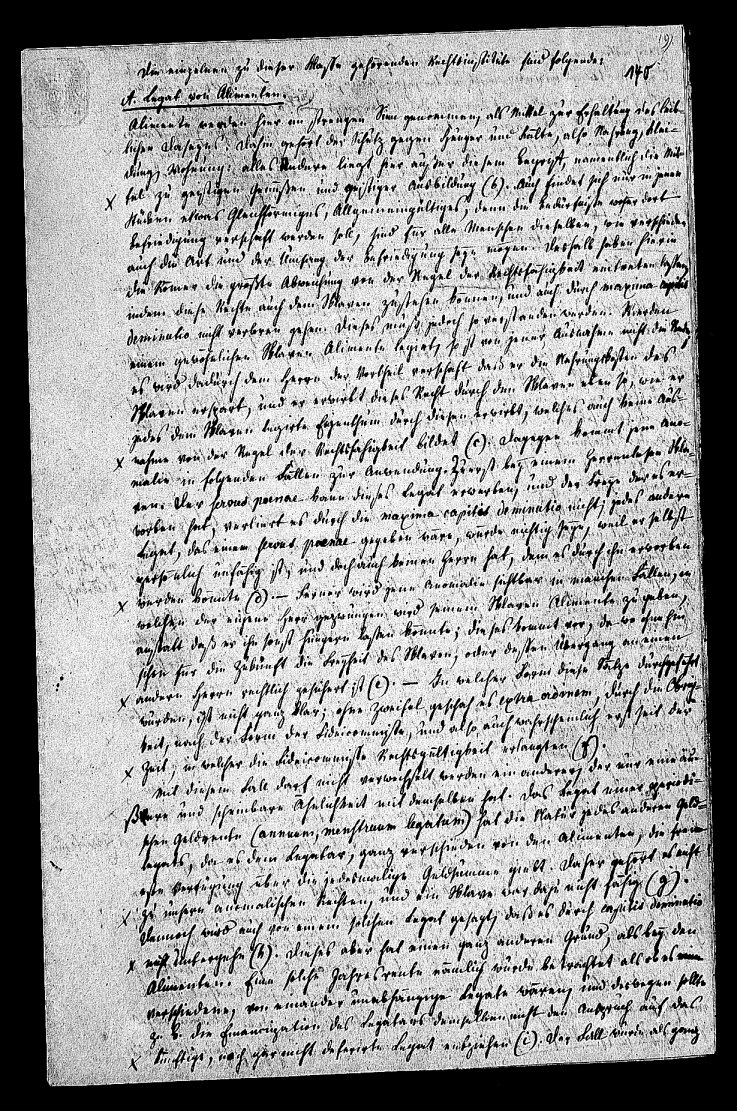 191
Die einzelnen zu dieser Klasse gehörenden Rechtsinstitute sind folgende:
140
A. Legat von Alimenten.
Alimente werden hier im strengen Sinn genommen, als Mittel zur Erhaltung des leib-
lichen Daseyns. Dahin gehört der Schutz gegen Hunger und Kälte, also Nahrung, Klei-
dung, Wohnung; alles Andere liegt hier außer diesem Begriff, namentlich die Mit-
x tel zu geistigen Genüssen und geistiger Ausbildung (b). Auch findet sich nur in jenen
Stücken etwas Gleichförmiges, Allgemeingültiges, denn die Bedürfnisse wofür dort
Befriedigung verschafft werden soll, sind für alle Menschen dieselben, wie verschieden
auch die Art und der Umfang der Befriedigung seyn mögen. Deshalb haben hierin
die Römer die größte Abweichung von der Regel der Rechtsfähigkeit eintreten lassen,
indem diese Rechte auch dem Sklaven zustehen können, und auch durch maxima capitis
deminutio nicht verloren gehen. Dieses muß jedoch so verstanden werden. Werden
einem gewöhnlichen Sklaven Alimente legirt, so ist von jener Ausnahme nicht die Rede,
es wird dadurch dem Herrn der Vortheil verschafft daß er die Nahrungskosten des
Sklaven erspart, und er erwirbt dieses Recht durch den Sklaven eben so, wie er
jedes dem Sklaven legirte Eigenthum durch diesen erwirbt, welches auch keine Aus-
x nahme von der Regel der Rechtsfähigkeit bildet (c). Dagegen kommt jene Ano-
malie in folgenden Fällen zur Anwendung. Zuerst bey einem herrenlosen Skla-
ven. Der servus poenae kann dieses Legat erwerben, und der Freye der es er-
worben hat, verliert es durch die maxima capitis deminutio nicht; jedes andere
Legat, das einem servus poenae gegeben wäre, würde nichtig seyn, weil er selbst
persönlich unfähig ist, und doch auch keinen Herrn hat, dem es durch ihn erworben
x werden könnte (d). — Ferner wird jene Anomalie sichtbar in manchen Fällen, in
welchen der eigene Herr gezwungen wird seinem Sklaven Alimente zu geben,
anstatt daß er ihn sonst hungern lassen könnte; dieses kommt vor, da wo ohnehin
schon für die Zukunft die Freyheit des Sklaven, oder dessten Übergang an einen
x andern Herrn rechtlich gesichert ist (e). — In welcher Form diese Sätze durchgeführt
wurden, ist nicht ganz klar; ohne Zweifel geschah es extra ordinem, durch die Obrig-
keit, nach der Form der Fideicommisse, und also auch wahrscheinlich erst seit der
x Zeit, in welcher die Fideicommisse Rechtsgültigkeit erlangten (f).
Mit diesem Fall darf nicht verwechselt werden ein anderer, der nur eine äu-
ßere und scheinbare Ähnlichkeit mit demselben hat. Das Legat einer periodi-
schen Geldrente (annuum, menstruum legatum) hat die Natur jedes anderen Geld-
legats, da es dem Legatar, ganz verschieden von den Alimenten, die freie-
ste Verfügung über die jedesmalige Geldsumme giebt. Daher gehört es nicht
x zu unsern anomalischen Rechten, und ein Sklave war dazu nicht fähig (g).
Dennoch wird auch von einem solchen Legat gesagt, daß es durch capitis deminutio
x nicht untergehe (h). Dieses aber hat einen ganz anderen Grund, als bey den
Alimenten. Eine solche Jahresrente nämlich würde betrachtet als ob es
verschiedene, von einander unabhängige Legate wären, und deswegen sollte
z. B. die Emancipation des Legatars demselben nicht den Anspruch auf das
x künftige, noch gar nicht deferirte Legat entziehen (i). Der Fall wurde als ganz